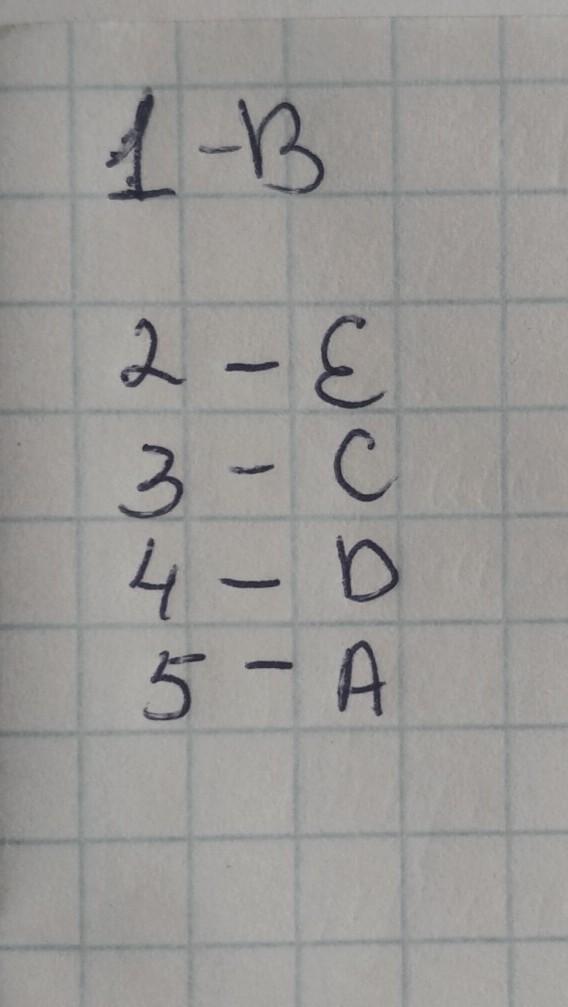 1 - B
2 - E
3 - C
4 - D
5 - A